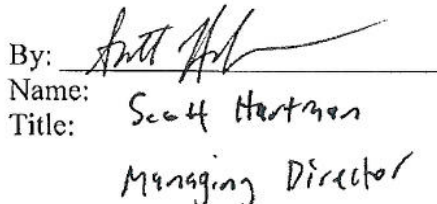 By: Scott Hartman
Name: Scott Hartman
Title:
Managing Director